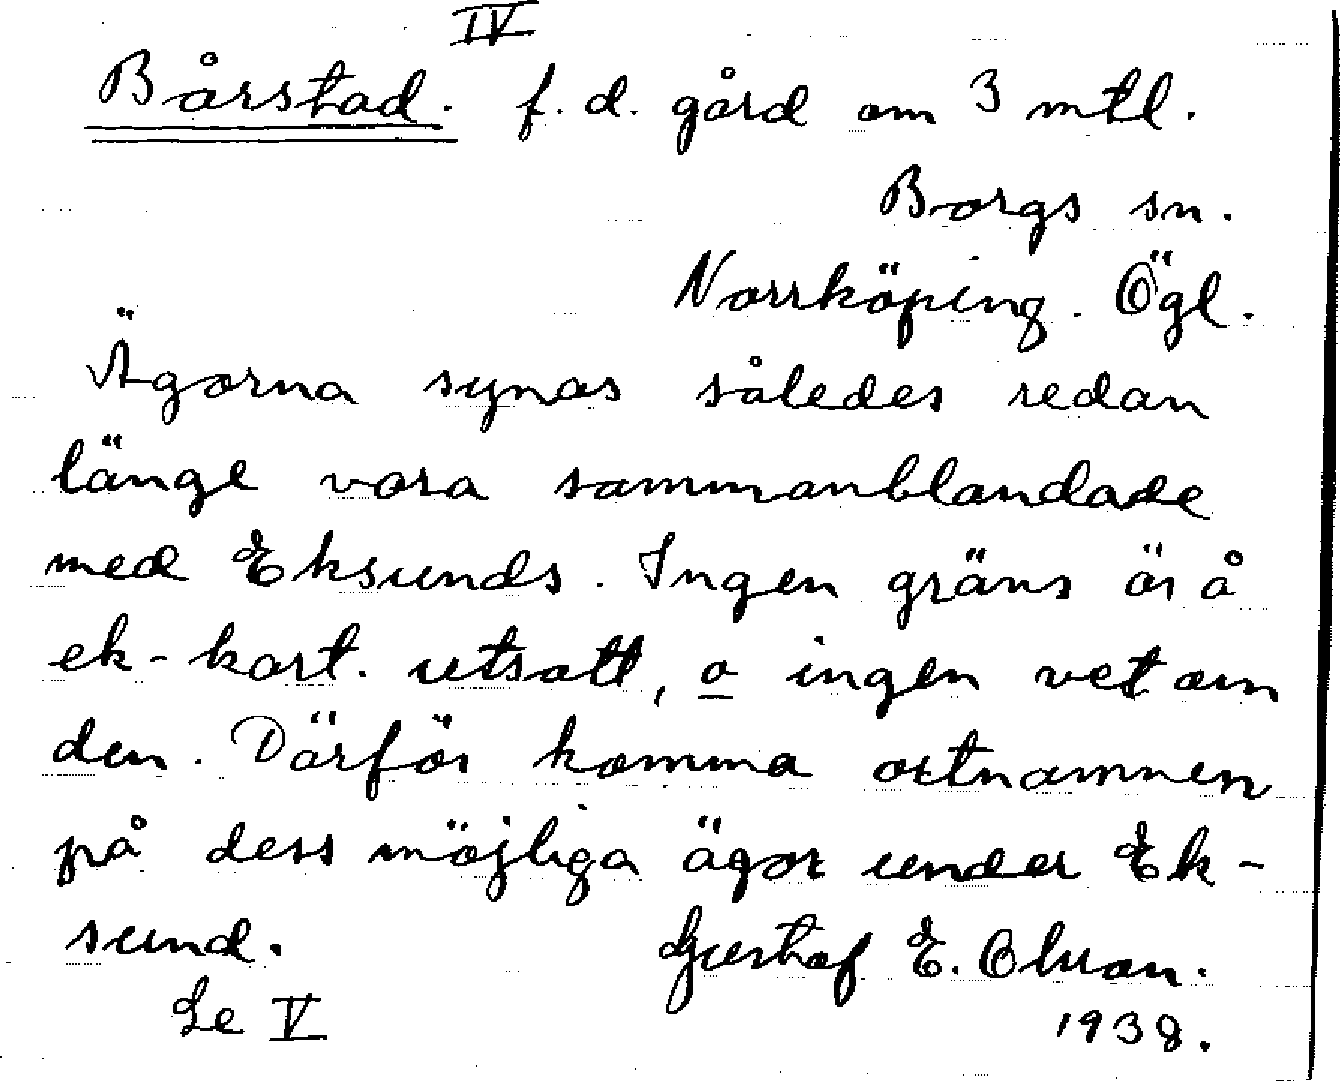 IV
Bårstad. f. d. gård om 3 mtl.
Borgs sn.
Norrköping. Ögl.
Ägorna synas således redan
länge vara sammanblandade
med Eksunds. Ingen gräns är å
ek-kart. utsatt, o ingen vet om
den. Därför komma ortnamnen
på dess möjliga ägor under Ek-
sund. Gustaf E. Olsson.
Se V 1938.